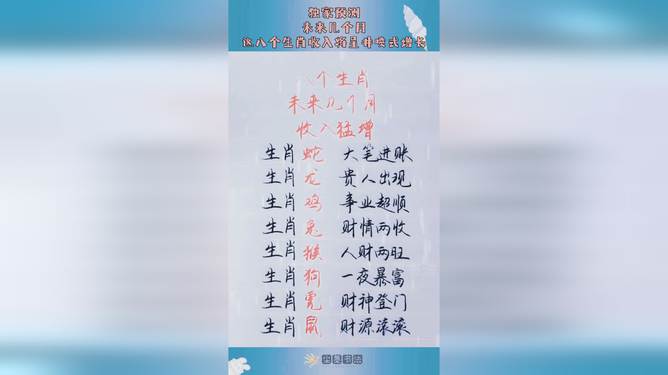 独家预测
未来几个月
这八个生肖收入将呈井喷式增长
个生肖
未来几个月
收入猛增
生肖蛇 大笔进账
生肖龙 贵人出现
生肖鸡 事业超顺
生肖兔 财情两收
生肖猴 人财两旺
生肖狗 一夜暴富
生肖虎 财神登门
生肖鼠 财源滚滚